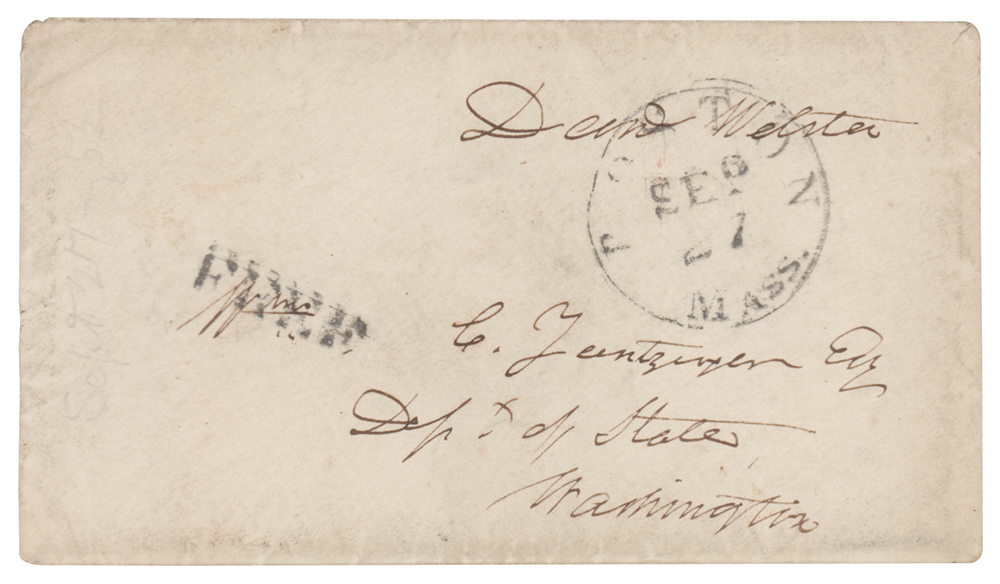 Danl Webster
BOSTON
SEP
27
MASS.
FREE
Wm C. Zantzinger Esq
Dept. of State
Washington